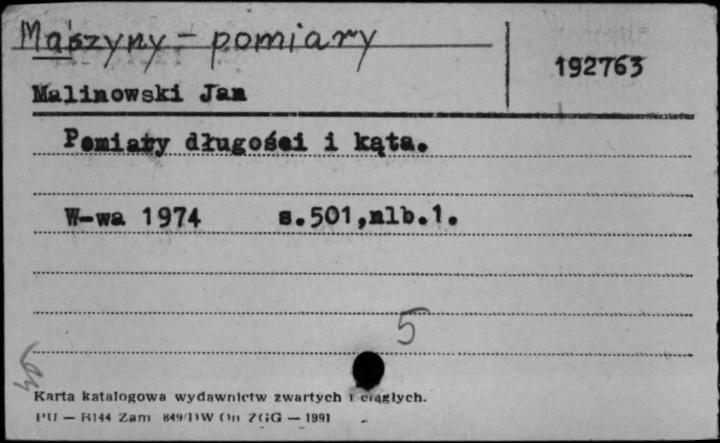 Maszyny - pomiary
192763
Malinowski Jan
Pomiary długości i kąta.
W-wa 1974 s.501,nlb.1.
5
Karta katalogowa wydawnictw zwartych i ciągłych.
PU — B144 Zam 849/DW On ZGG — 1991